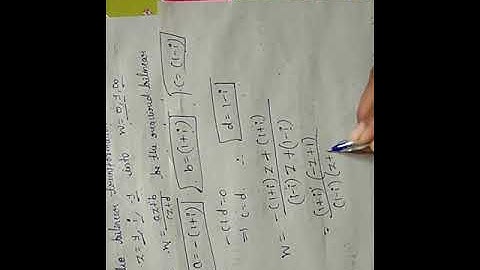 bilinear transformation
z = 1, i, -1 into w = 0, 1, ∞
w = az+b / cz+d be the required bilinear
a = -(1+i), b = (1+i), c = (1-i)
-c+d=0
⇒ c=d. ∴ d = 1-i
w = -(1+i) z + (1+i) / (1-i) z + (1-i)
= (1+i) (-z+1) / (1-i) (z+